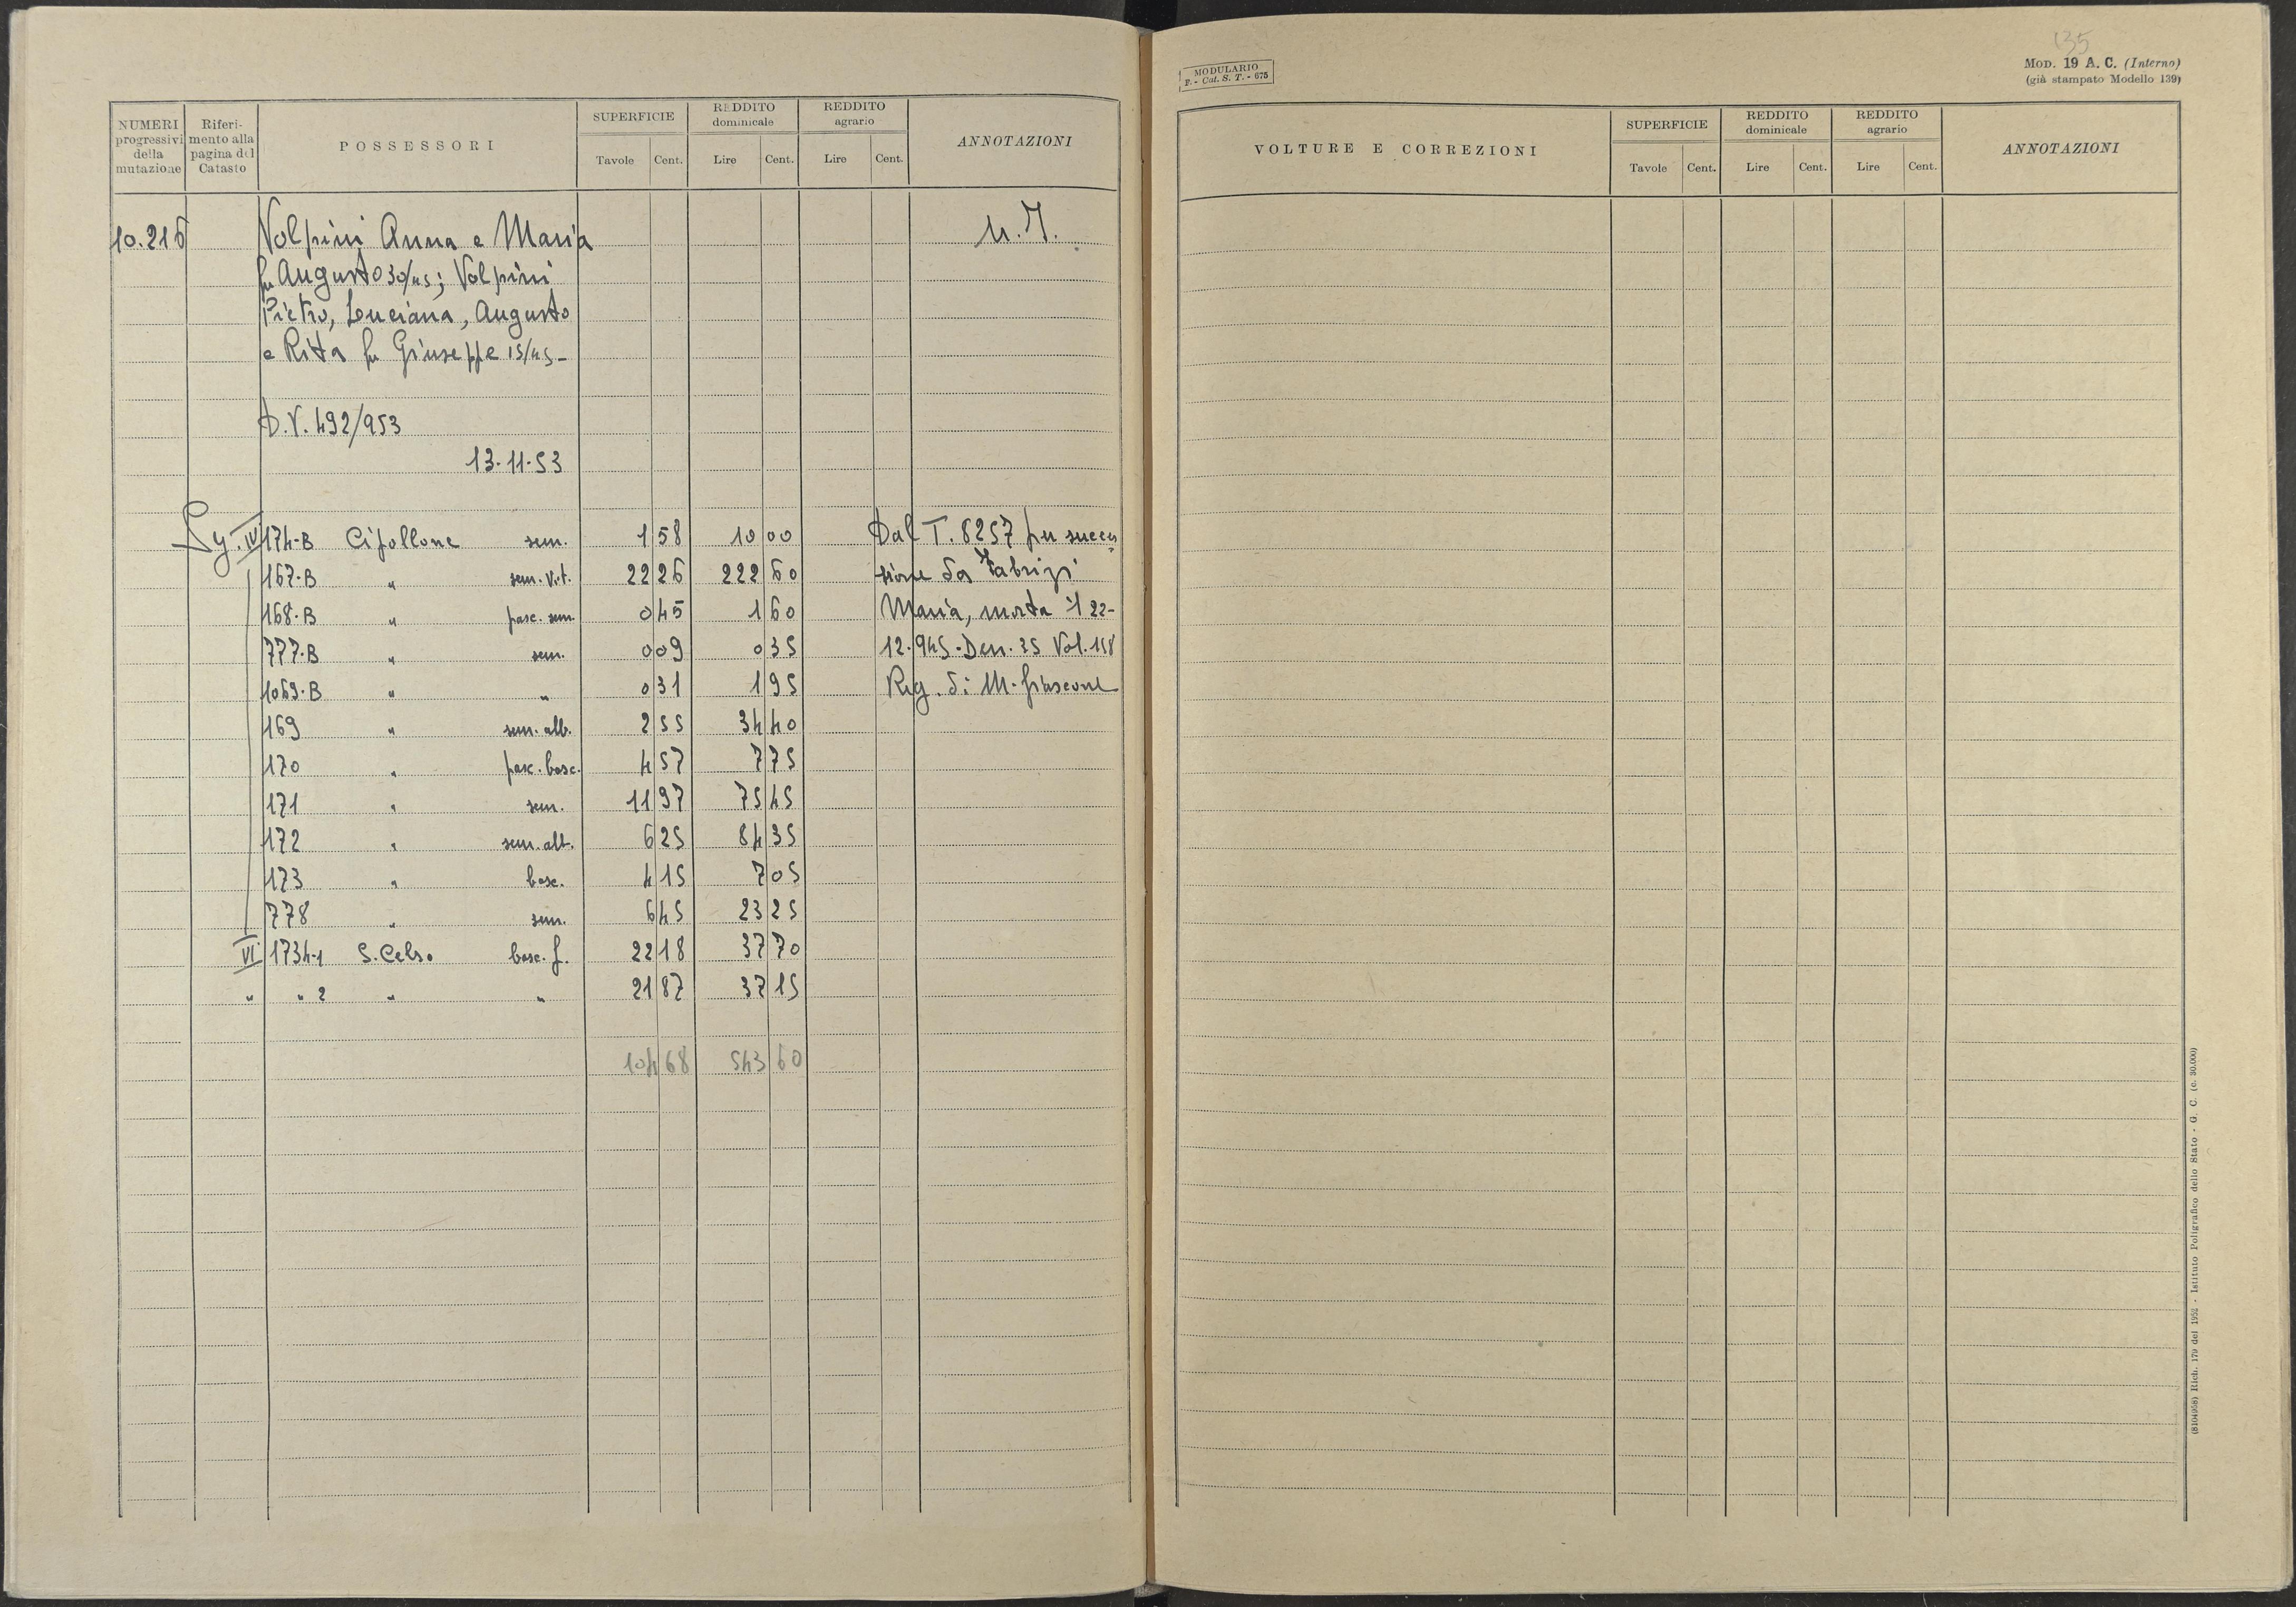 NUMERI progressivi della mutazione
Riferimento alla pagina del Catasto
POSSESSORI
SUPERFICIE
Tavole Cent.
REDDITO dominicale
Lire Cent.
REDDITO agrario
Lire Cent.
ANNOTAZIONI
10.216 Volpini Anna e Maria
fu Augusto 30/45; Volpini
Pietro, Luciana, Augusto
e Rita fu Giuseppe 15/45-
D.V. 492/953
13-11-53
IV 174-B Cipollone sem. 1 58 10 00 Dal T. 8257 per succes
167-B " sem. vit. 22 26 222 60 sione da Fabrizi
168-B " pasc. sem. 0 45 1 60 Maria, morta il 22-
777-B " sem. 0 09 0 35 12-945-Den. 35 Vol. 158
1069-B " " 0 31 1 95 Reg. di M. fiascone
169 " sem. alb. 2 55 34 40
170 " pasc. bosc. 4 57 7 75
171 " sem. 11 97 75 45
172 " sem. alb. 6 25 84 35
173 " bosc. 4 15 7 05
778 " sem. 6 45 23 25
VI 1734-1 S. Celso bosc. f. 22 18 37 70
" " 2 " " 21 87 37 15
104 68 543 60
135
MODULARIO
F. - Cat. S. T. - 675
MOD. 19 A. C. (Interno)
(già stampato Modello 139)
VOLTURE E CORREZIONI
SUPERFICIE
Tavole Cent.
REDDITO dominicale
Lire Cent.
REDDITO agrario
Lire Cent.
ANNOTAZIONI
(8104958) Rich. 179 del 1952 - Istituto Poligrafico dello Stato - G. C. (c. 30.000)